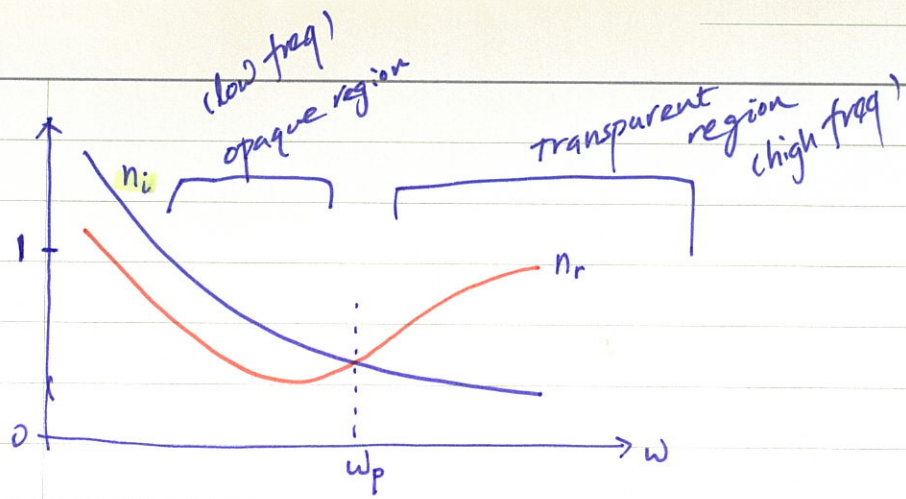 (low freq)
opaque region
transparent
region
(high freq)
ni
1
nr
0
ωp
ω